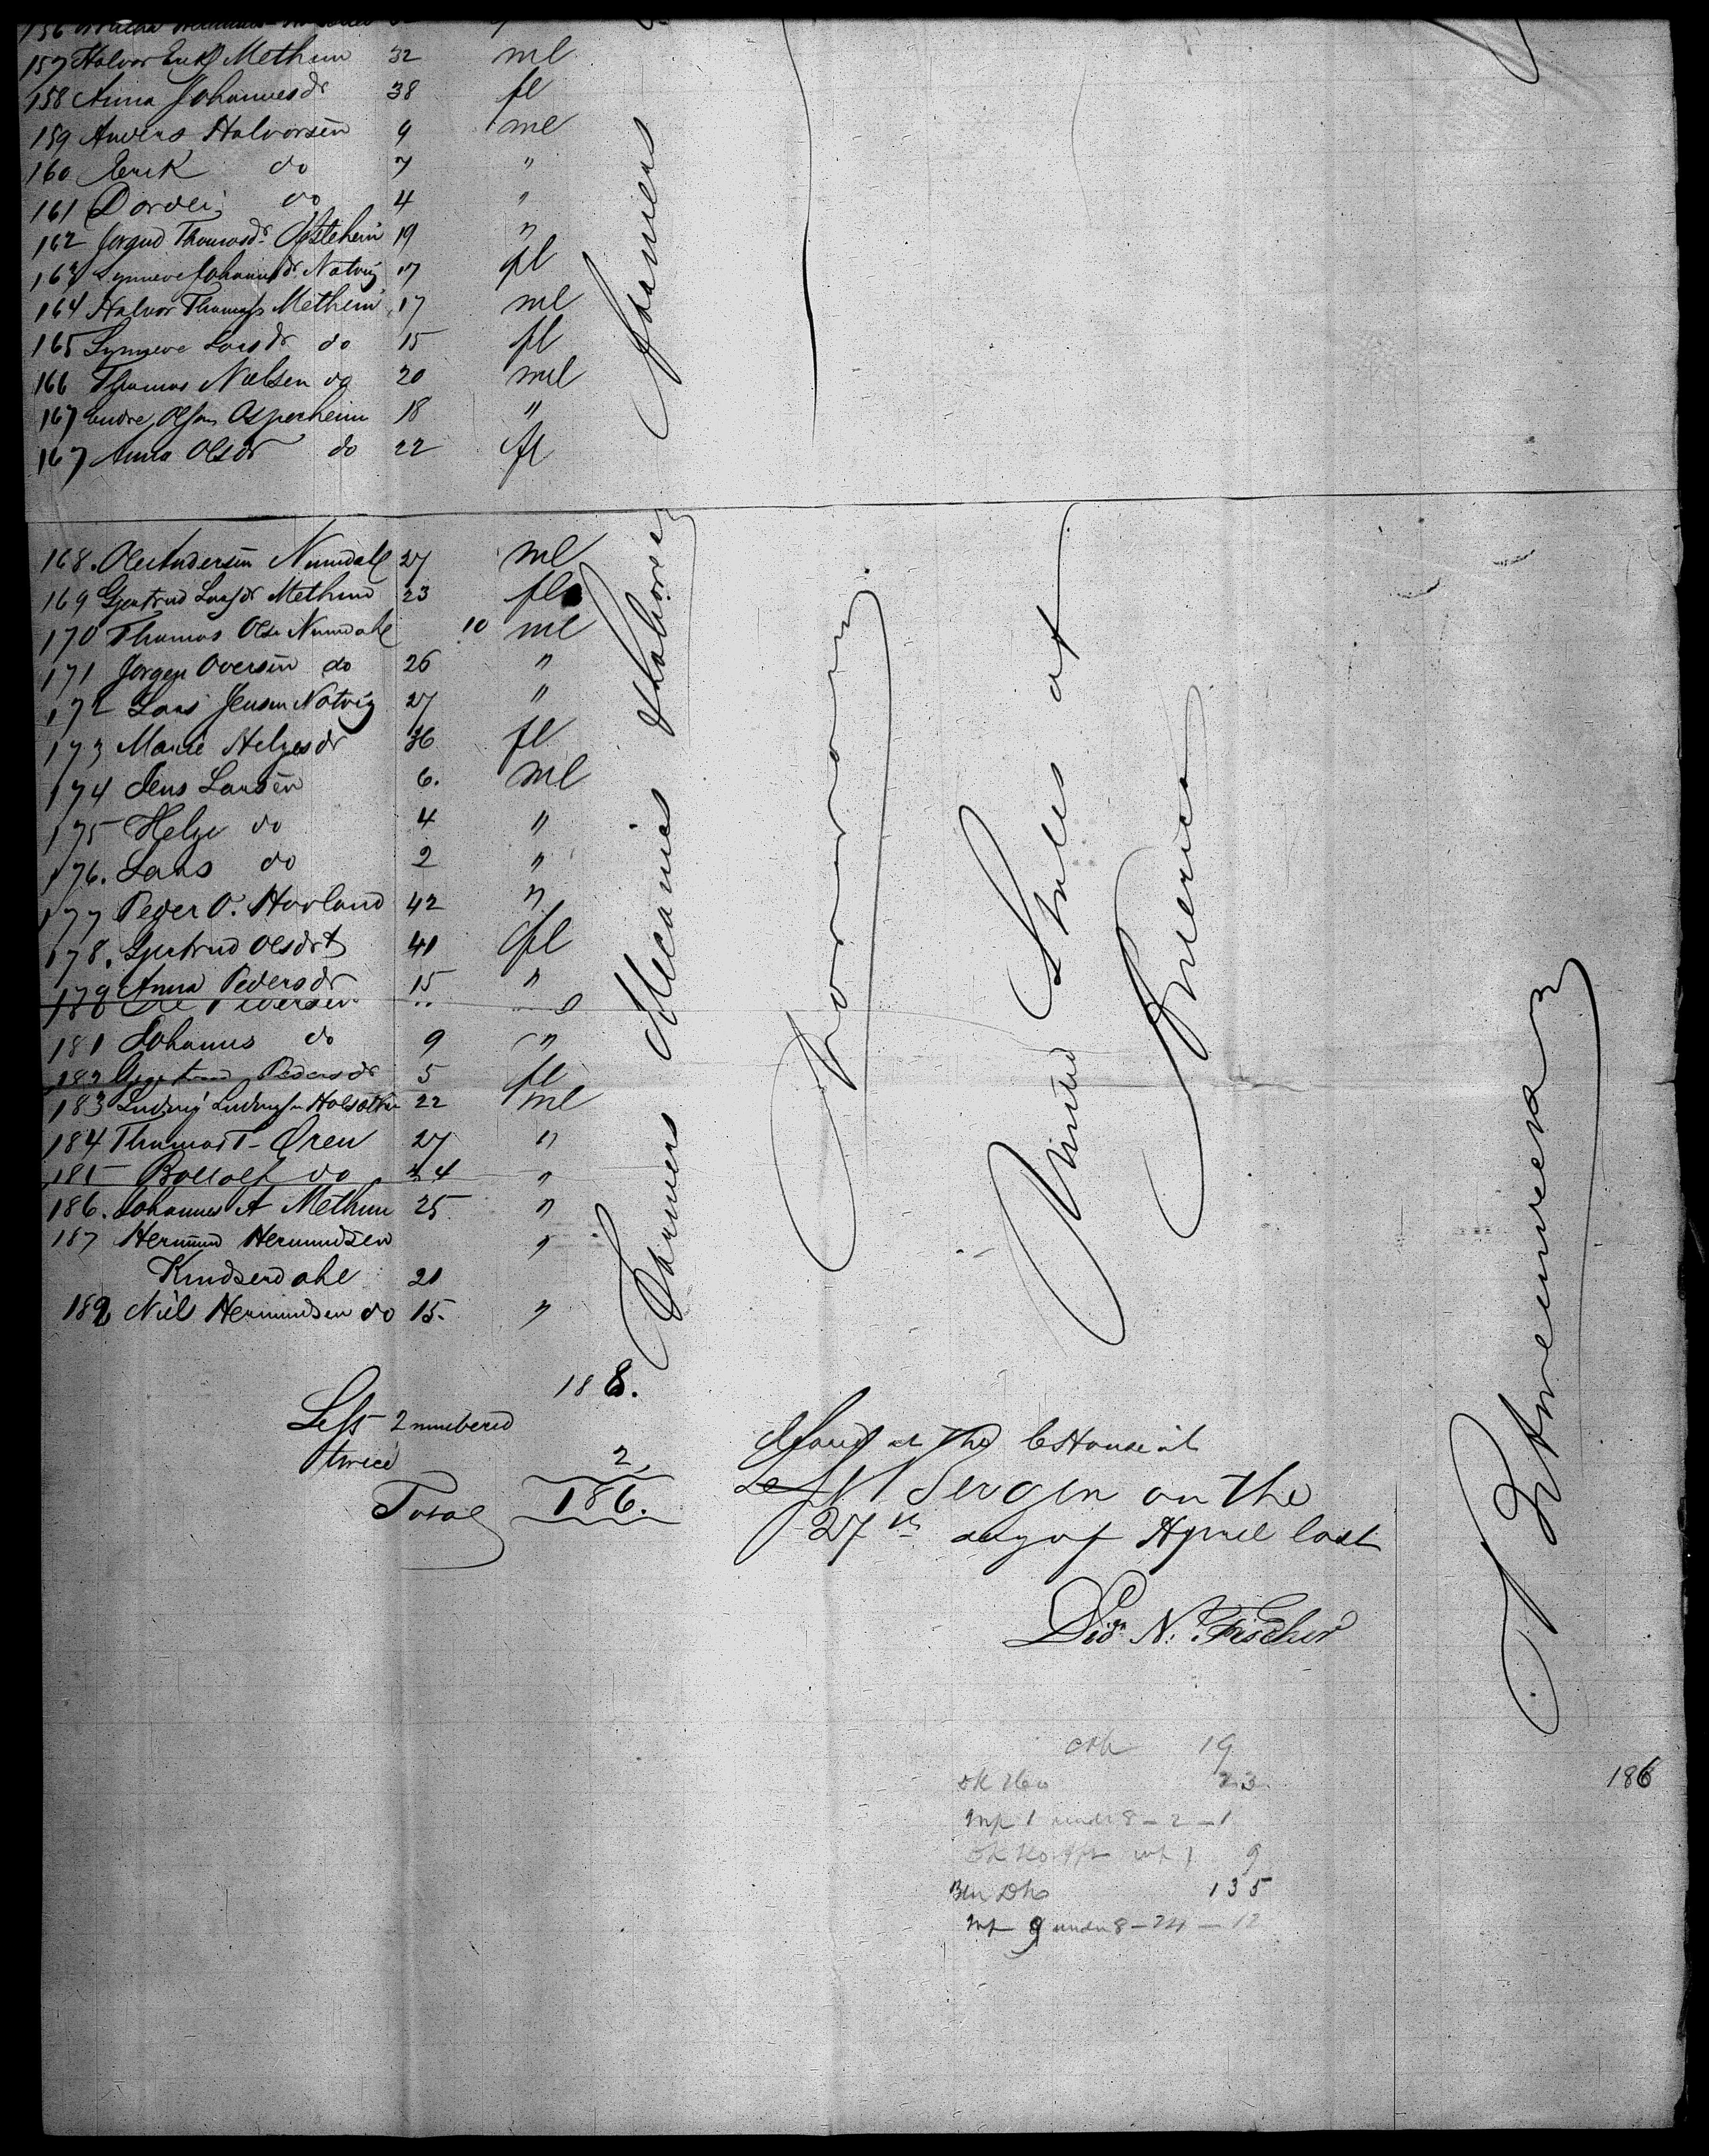 157 Halvor Erik Methun 32 ml
158 Anna Johannesdr 38 fl
159 Anders Halvorsen 9 ml
160 Erik do 7 "
161 Dordei do 4 "
162 Thomasdr 19 "
163 Synneve Johannsdr Natvig 17 fl
164 Halvor Thomass Methun 17 ml
165 Synneve Larsdr do 15 fl
166 Thomas Nielsen do 20 ml
167 Endre Olsen Asperheim 18 "
167 Anna Olsdr do 22 fl
168. Ole Andersen Numdahl 27 ml
169 Gjertrud Larsdr Methun 23 fl
170 Thomas Olse Numdahl 10 ml
171 Jorgen Oversen do 26 "
172 Lars Jensen Natvig 27 "
173 Marie Helgesdr 36 fl
174 Jens Larsen 6. ml
175 Helge do 4 "
176. Lars do 2 "
177 Peder O. Hovland 42 "
178. Gjertrud Olsdr 41 fl
179 Anna Pedersdr 15 "
180 Ole Pedersen
181 Johannes do 9 "
182 Pedersdr 5 fl
183 Ludvig 22 ml
184 Thomas T- Oren 27 "
185 do 24 "
186. Johannes A Methun 25 "
187 Hermund Hermundsen "
Knudsendahl 21
189 Niels Hermundsen do 15. "
188.
Less 2 numbered
twice 2
Total 186.
Farmers
Farmers Mecanics & Labourers
Norway
United States of
America
Between decks
at the C House at
Bergen on the
27th day of April last
N. Fischer
19
23
1 under 8 – 2 – 1
9
135
9 under 8 – 24 – 12
186